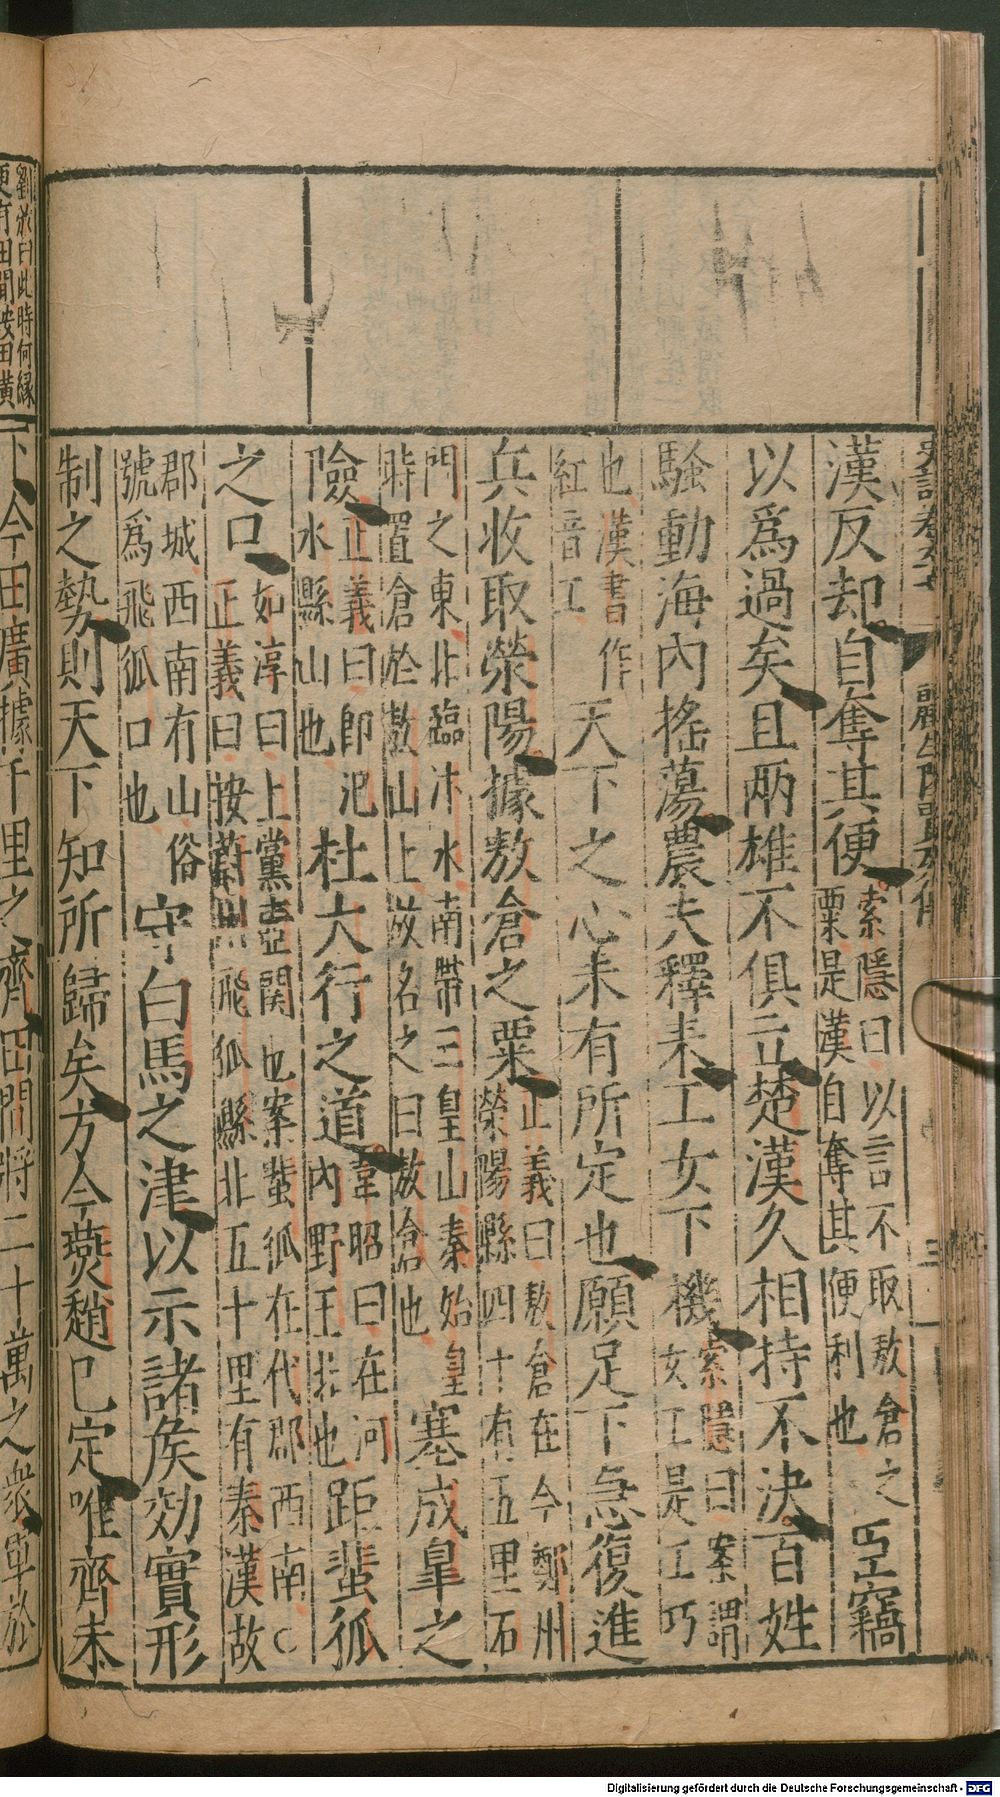 史記卷九十七 酈生陸賈列傳 三
漢反却自奪其便索隱曰以言不取敖倉之粟是漢自奪其便利也臣竊
以爲過矣且兩雄不俱立楚漢久相持不決百姓
騷動海內搖蕩農夫釋耒工女下機索隱曰案謂女工是工巧
也漢書作紅音工天下之心未有所定也願足下急復進
兵收取滎陽據敖倉之粟正義曰敖倉在今鄭州滎陽縣四十有五里石
門之東北臨汴水南帶三皇山秦始皇時置倉於敖山上故名之曰敖倉也塞成皐之
險正義曰即汜水縣山也杜大行之道韋昭曰在河內野王北也距蜚狐
之口如淳曰上黨壺關也案蜚狐在代郡西南○正義曰按蔚州飛狐縣北五十里有秦漢故
郡城西南有山俗號爲飛狐口也守白馬之津以示諸侯効實形
制之勢則天下知所歸矣方今燕趙已定唯齊未
劉攽曰此時何緣
更有田間按田橫
下今田廣據千里之齊田間將二十萬之衆軍於
Digitalisierung gefördert durch die Deutsche Forschungsgemeinschaft - DFG